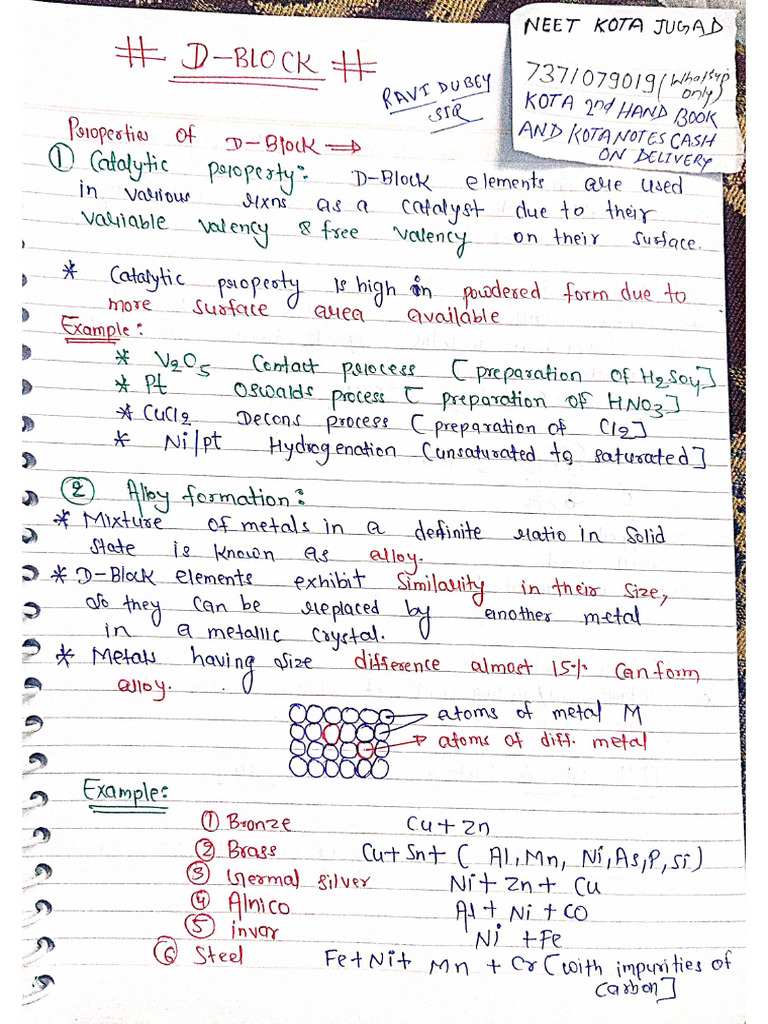 # D-BLOCK #
NEET KOTA JUGAD
7371079019 (Whatsup only)
KOTA 2nd HAND BOOK
AND KOTA NOTES CASH
ON DELIVERY
RAVI DUBEY
SIR
Properties of D-Block →
① Catalytic property: D-Block elements are used
in various rxns as a catalyst due to their
variable valency & free valency on their surface.
* Catalytic property is high in powdered form due to
more surface area available
Example:
* V2O5 Contact process [preparation of H2SO4]
* Pt Oswalds process [preparation of HNO3]
* CuCl2 Decons process [preparation of Cl2]
* Ni/Pt Hydrogenation (unsaturated to saturated]
② Alloy formation:
* Mixture of metals in a definite ratio in solid
state is known as alloy.
* D-Block elements exhibit similarity in their size,
so they can be replaced by another metal
in a metallic crystal.
* Metals having size difference almost 15% can form
alloy.
→ atoms of metal M
→ atoms of diff. metal
Example:
① Bronze Cu + Zn
② Brass Cu + Sn + ( Al, Mn, Ni, As, P, Si)
③ Germal silver Ni + Zn + Cu
④ Alnico Al + Ni + CO
⑤ invar Ni + Fe
⑥ Steel Fe + Ni + Mn + Cr [with impurities of
Carbon]